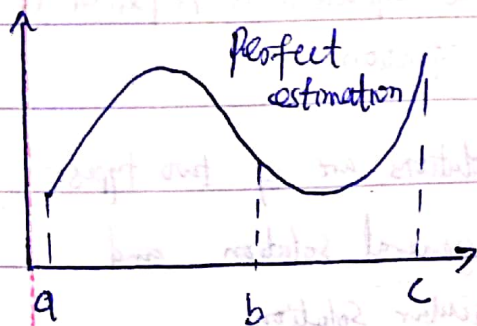 Perfect
estimation
a
b
c